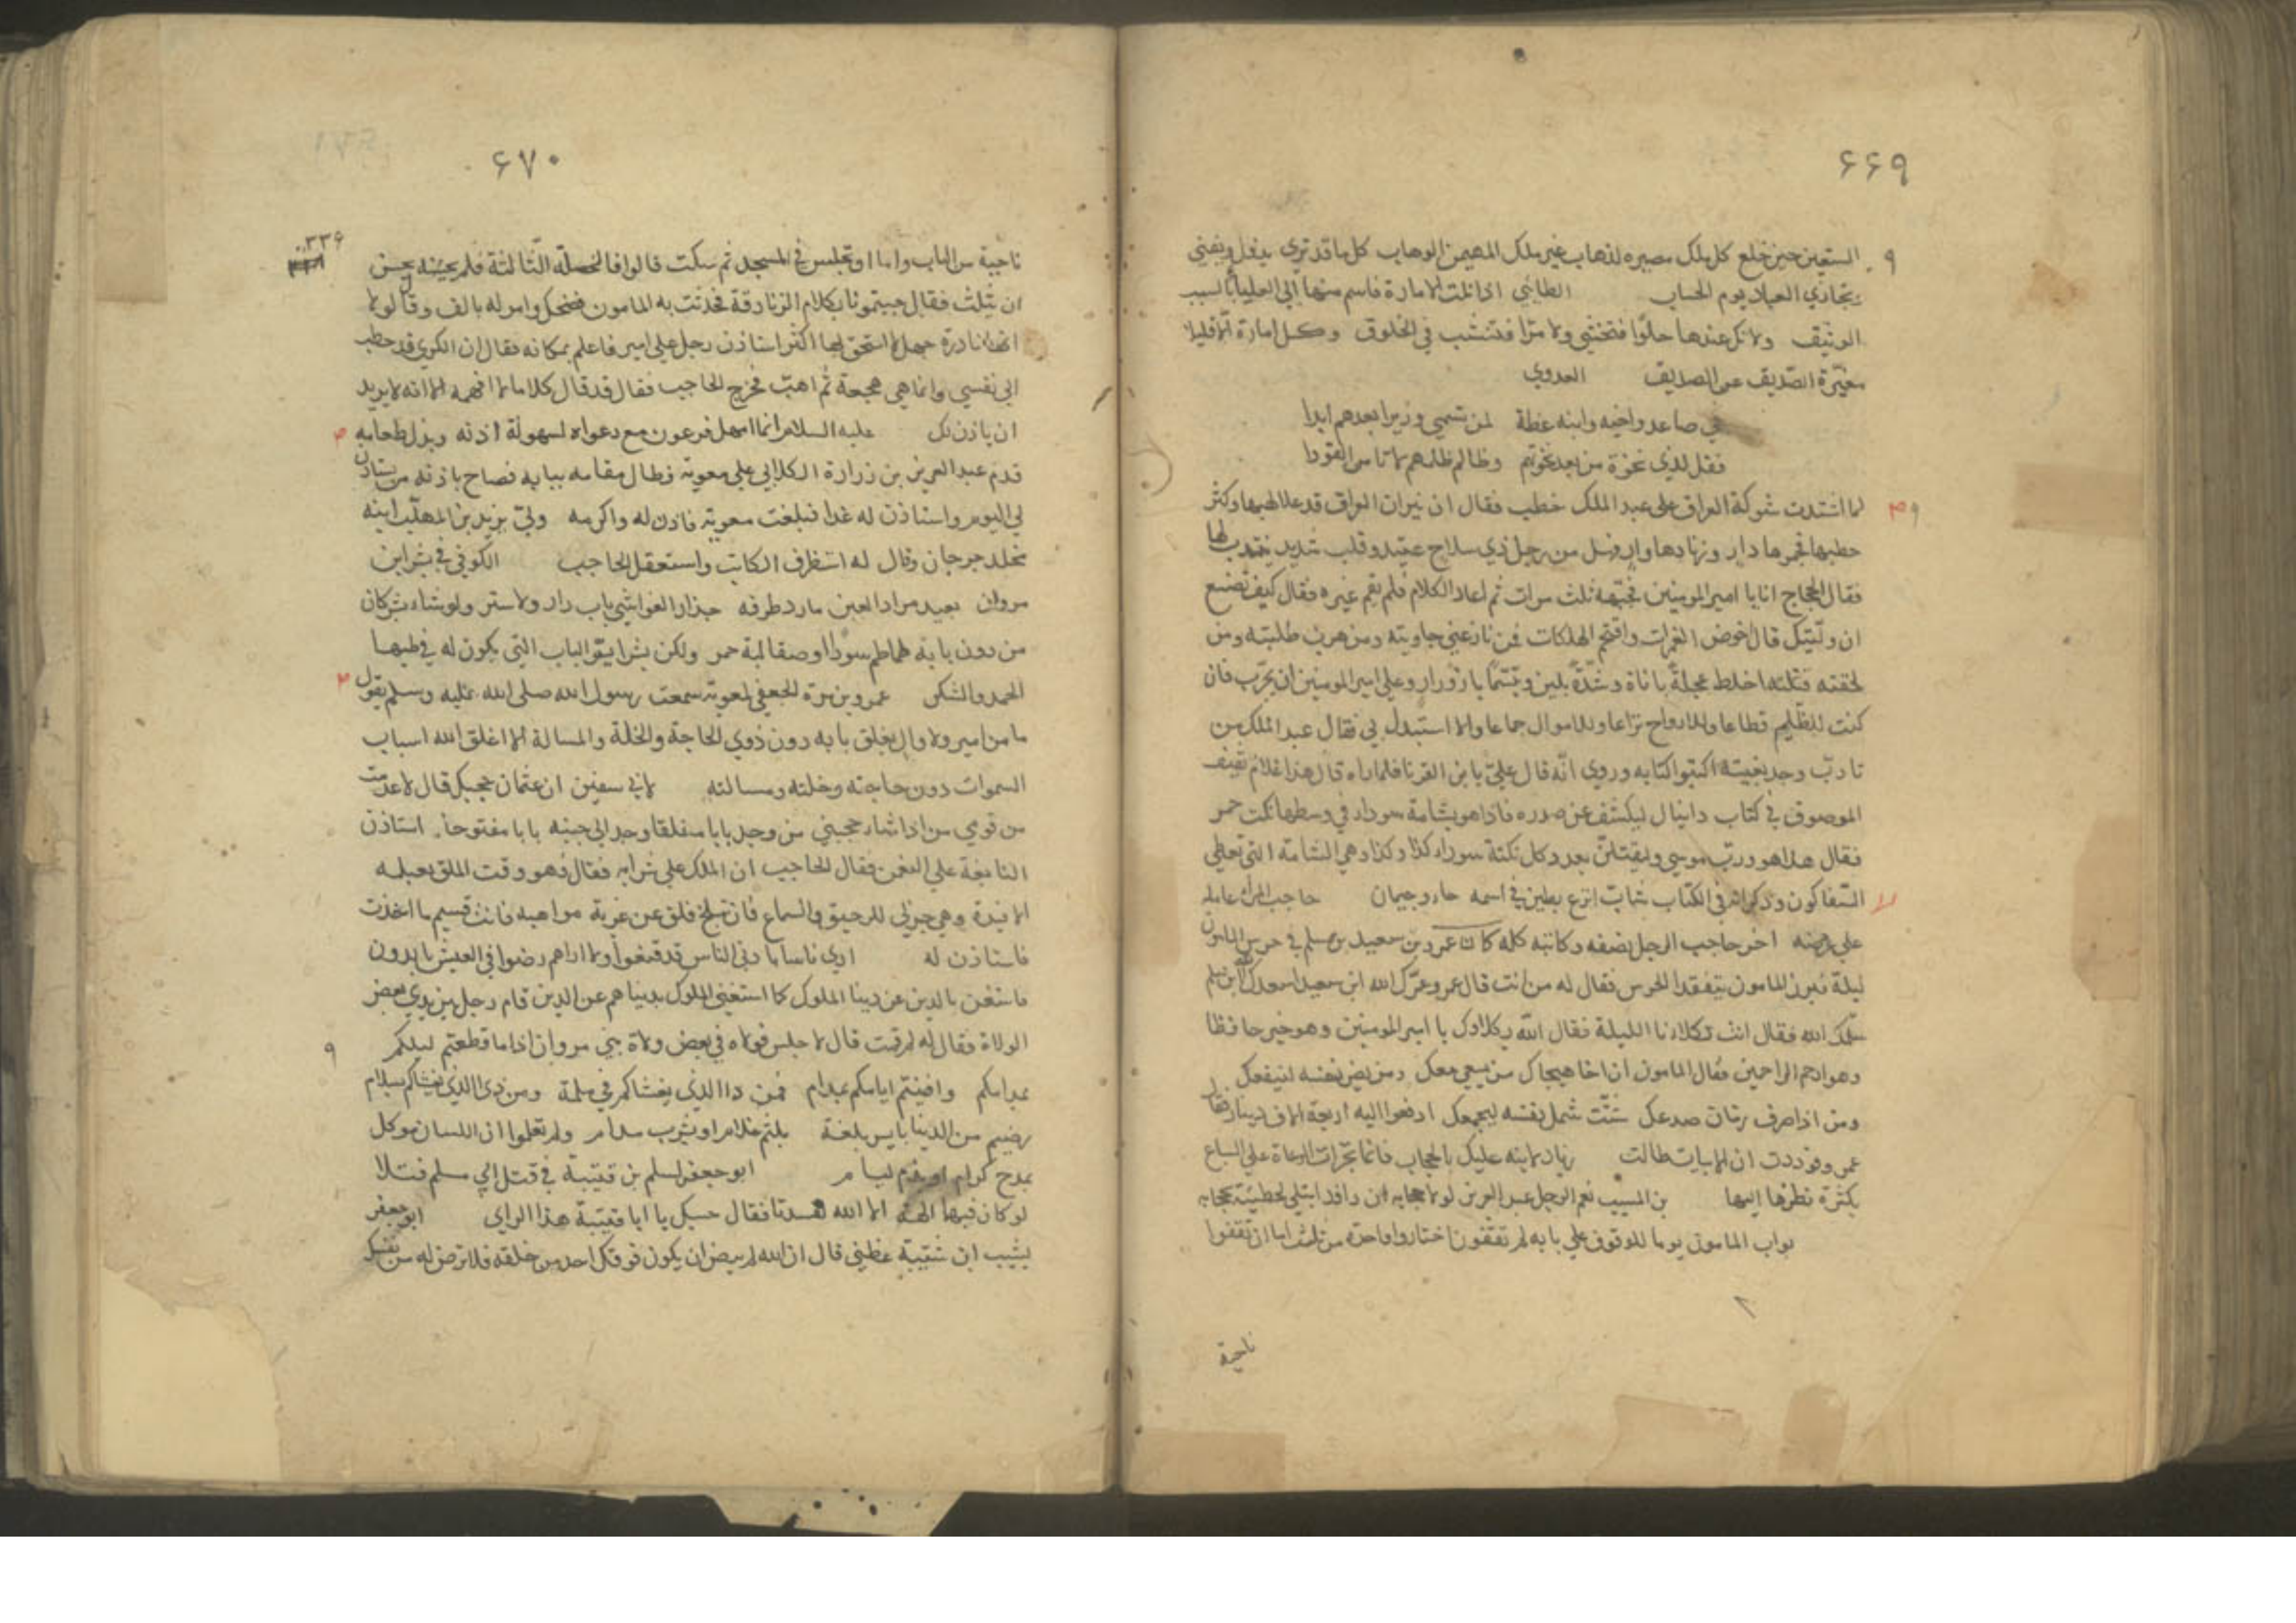 ۶۶۹
المستعين حين خلع كل ملك مصيره لذهاب غير ملك المهيمن الوهاب كل ما قد تري يزول ويفني
ويجازي العباد يوم الحساب الطائي اذا نلت الامارة فاسم منها الي العليا بالسبب
الوثيق ولا تك عندها حلوا فتحشي ولا مرا فتنشب في الحلوق وكل امارة الا قليلا
مغيرة الصديق عن الصديق العدوي
في صاعد واخيه وابنه عظة لمن تسمي وزيرا بعدهم ابدا
فقل لذي نخوة من بعد نخوتهم وظالم ظلمهم لا تامن القودا
لما اشتدت شوكة العراق علي عبد الملك خطب فقال ان نيران العراق قد علا لهبها وكثر
حطبها فجمرها وار وزنادها وار فهل من رجل ذي سلاح عتيد وقلب شديد ينتدب لها
فقال الحجاج انا يا امير المومنين فجبهه ثلث مرات ثم اعاد الكلام فلم يقم غيره فقال كيف تصنع
ان وليتك قال اخوض الغمرات واقتحم الهلكات فمن نازعني جاوبته ومن هرب طلبته ومن
لحقته قتلته اخلط عجلة باناة وشدة بلين وتبسما بازورار وعلي امير المومنين ان يجرب فان
كنت للظليم قطاعا وللارواح نزاعا وللاموال جماعا والا استبدل بي فقال عبد الملك من
تادب وجد بغيته اكتبوا كتابه وروي انه قال علي بابن القرنا فلما راه قال هذا غلام ثقيف
الموصوف في كتاب دانيال ليكشف عن صدره فاذا هو بشامة سوداء في وسطها نكت حمر
فقال هذا هو ورب موسي وليقتلن بعدد كل نكتة سوداء كذا وكذا وهي الشامة التي تعطي
السفاكون وذكرانه في الكتاب شاب انزع بطين في اسمه حاء وجيمان حاجب المرء عامله
علي عرضه اخر حاجب الرجل نصفه وكاتبه كله كان عمرو بن سعيد بن سلم في حرس المامون
ليلة فبرز المامون يتفقد الحرس فقال له من انت قال عمرو عمرك الله ابن سعيد اسعدك الله ابن سلم
سلمك الله فقال انت تكلاونا الليلة فقال الله يكلاوك يا امير المومنين وهو خير حافظا
وهو ارحم الراحمين فقال المامون ان اخا هيجاك من يسعي معك ومن يضر نفسه لينفعك
ومن اذا صرف زمان صدعك شتت شمل نفسه ليجمعك ادفعوا اليه اربعة الاف دينار فقال
عمرو فوددت ان الابيات طالت زياد لابنه عليك بالحجاب فانما تجرات الرعاة علي السباع
بكثرة نظرها اليها بن المسيب نعم الرجل عبد العزيز لولا حجابه ان داود ابتلي لخطيئته بحجابه
بواب المامون يوما للوقوف علي بابه لم تقفون اختاروا واحدة من ثلث اما ان تقفوا
ناحية
۶۷۰
۳۳۶
ناحية من الباب واما او تجلس في المسجد ثم سكت قالوا فالخصلة الثالثة فلم يحسن
ان يثلث فقال جيتمونا بكلام الزنادقة فحدثت به المامون فضحك وامر له بالف وقالوا لا
انها نادرة جهل لا استحق لها اكثر استاذن رجل علي امير فاعلم بمكانه فقال ان الكري قد خطب
الي نفسي وانما هي هجعة ثم اهب فخرج الحاجب فقال قد قال كلاما لا افهمه الا انه لا يريد
ان ياذن لك عليه السلام انما امهل فرعون مع دعواه لسهولة اذنه وبذل طعامه
قدم عبد العزيز بن زرارة الكلابي علي معوية فطال مقامه ببابه فصاح باذنه من يستاذن
لي اليوم واستاذن له غدا فبلغت معوية فاذن له واكرمه ولي يزيد بن المهلب ابنه
مخلد جرجان وقال له استظرف الكاتب واستعقل الحاجب الكوفي في بشر ابن
مروان بعيد مراد العين مارد طرفه حذار الغواشي باب دار ولا ستر ولو شاء بشر كان
من دون بابه طماطم سودا وصقالبة حمر ولكن بشرا يتر الباب التي يكون له في طيها
الحمد والشكر عمرو بن مرة الجعفي لمعوية سمعت رسول الله صلي الله عليه وسلم يقول
ما من امير ولا وال يغلق بابه دون ذوي الحاجة والخلة والمسالة الا اغلق الله اسباب
السموات دون حاجته وخلته ومسالته لابي سفين ان عثمن حجبك قال لا عدمت
من قومي من اذا شاء حجبني من وجد بابا مغلقا وجد الي جنبه بابا مفتوحا استاذن
النابغة علي النعمن فقال الحاجب ان الملك علي شرابه فقال فهو وقت الملق تقبله
الافيدة وهي جزلي للرحيق والسماع فان تبلج فلق عن غرة مواهبه فانت قسيم ما اخذت
فاستاذن له اري ناسا بادني الناس قد قنعوا ولا اراهم رضوا في العيش بالدون
فاستغن بالدين عن دنيا الملوك كما استغني الملوك بدنياهم عن الدين قام رجل بين يدي بعض
الولاة فقال له لم قمت قال لاجلس فولاه في بعض ولاة بني مروان اذا ما قطعتم ليلكم
بمدامكم وافنيتم ايامكم بمدام فمن ذا الذي يغشاكم في ملمة ومن ذا الذي يغشاكم بسلام
رضيتم من الدنيا بايسر بلغة بلثم غلام او بشرب مدام ولم تعلموا ان اللسان موكل
بمدح كرام او بذم ليام ابو جعفر لسلم بن قتيبة في قتل ابي مسلم فتلا
لو كان فيهما الهة الا الله لفسدتا فقال حسبك يا ابا قتيبة هذا الراي ابو جعفر
بشبيب ابن شيبة عظني قال ان الله لم يرض ان يكون فوقك احد من خلقه فلا ترض له من نفسك